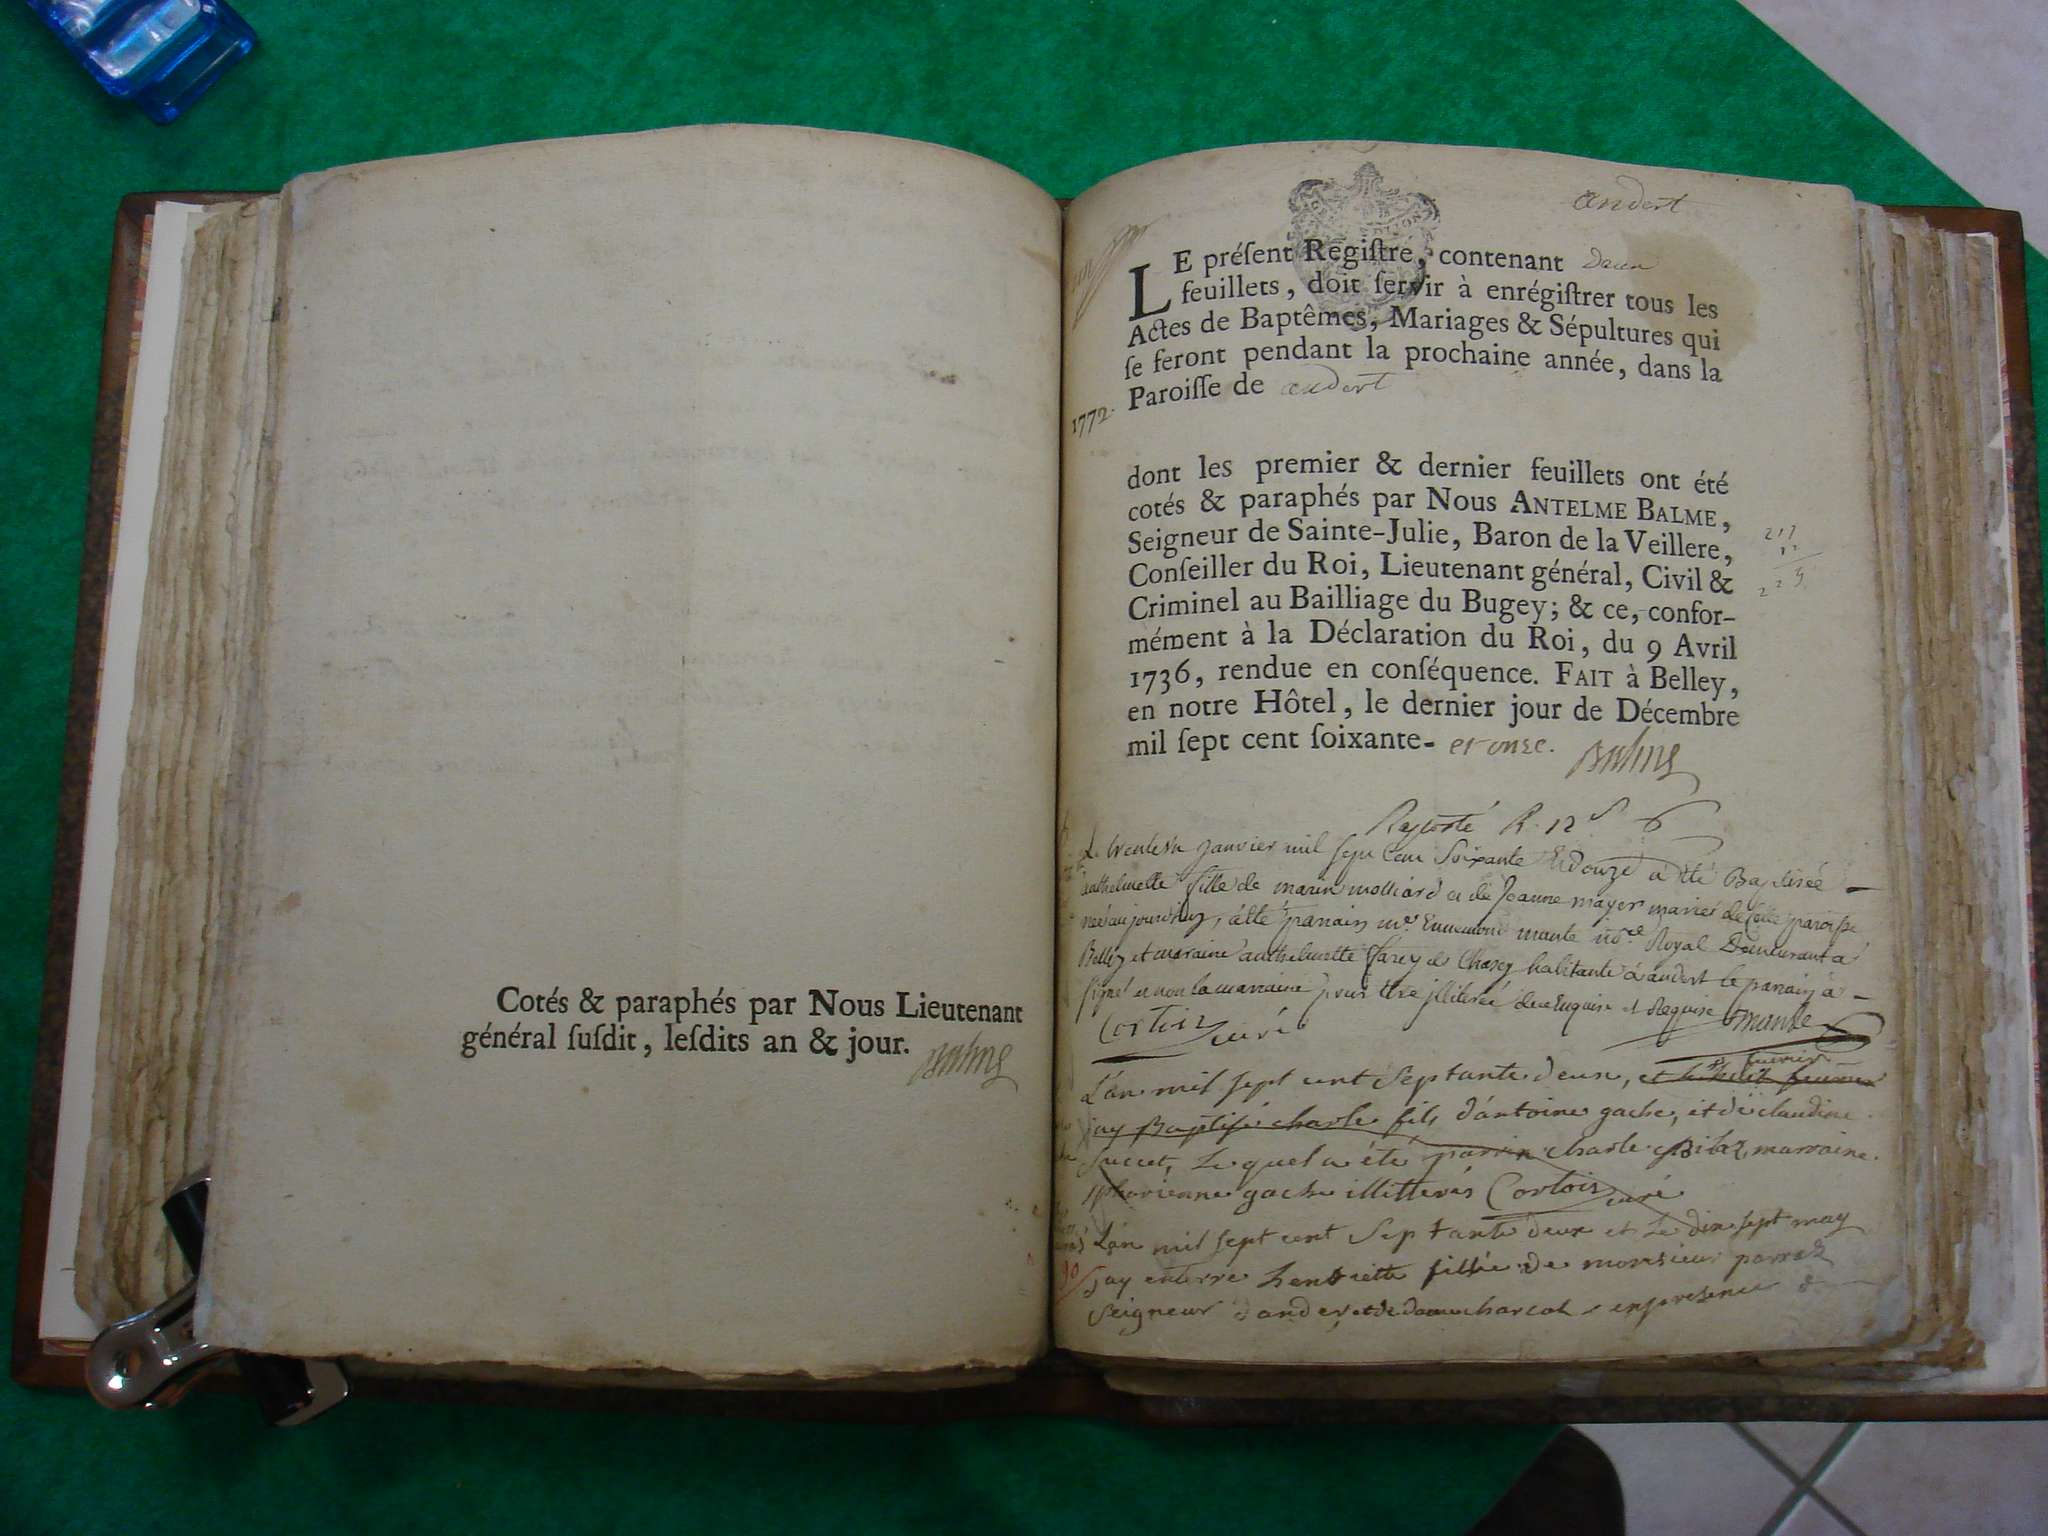 Cotés & paraphés par Nous Lieutenant
général ſuſdit, leſdits an & jour. Balme
andert
LE préſent Regiſtre, contenant deux
feuillets, doit ſervir à enrégiſtrer tous les
Actes de Baptêmes, Mariages & Sépultures qui
ſe feront pendant la prochaine année, dans la
Paroiſſe de andert
1772.
dont les premier & dernier feuillets ont été
cotés & paraphés par Nous ANTELME BALME,
Seigneur de Sainte-Julie, Baron de la Veillere,
Conſeiller du Roi, Lieutenant général, Civil &
Criminel au Bailliage du Bugey; & ce, confor-
mément à la Déclaration du Roi, du 9 Avril
1736, rendue en conſéquence. FAIT à Belley,
en notre Hôtel, le dernier jour de Décembre
mil ſept cent ſoixante- et onze. Balme
Le janvier mil sept cent soixante Et douze a été Baptisée
anthelmette fille de marin molliard et de Jeanne mayer mariés de cette paroisse
née aujourdhuy, a été parain mr Ennemond mante Royal Demeurant à
Belley et maraine anthelmette habitante à andert le parain à
signé et non la marraine pour être illiterée de ce Enquise et Requise mante
Cortois curé
L'an mil sept cent septante deux, et le
jay Baptisé charle fils d'antoine gache, et de claudine
succet, Le quel a été parrin charle Bilaz, marraine
gache illitterés Cortois curé
L'an mil sept cent septante deux et Le dix sept may
jay enterré henriette fille de monsieur parra
seigneur d'andert et de dame charcot en presence d